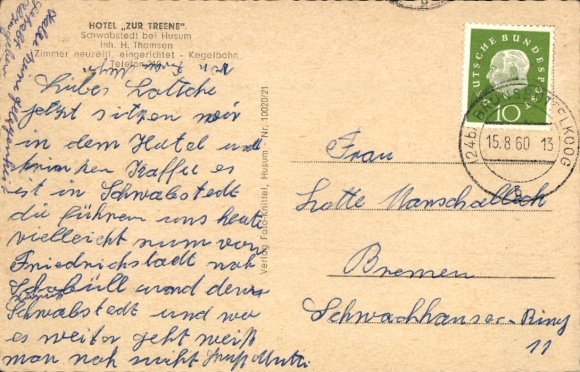 HOTEL „ZUR TREENE"
Schwabstedt bei Husum
Inh. H. Thomsen
Zimmer neuzeitl. eingerichtet - Kegelbahn
Telefon
Liebes Lottche
jetzt sitzen wir
in dem Hotel und
trinken Kaffee es
ist in Schwabstedt
die führen uns heute
vielleicht nun von
Friedrichstadt nah
und dem
Schwabstedt und wo
es weiter geht weiß
man noh niht Gruß Mutti
Verlag Foto-Knittel, Husum - Nr. 10020/21
DEUTSCHE BUNDESPOST
10
15.8.60 13
Frau
Lotte Manschalleck
Bremen
Schwachhauser-Ring
11